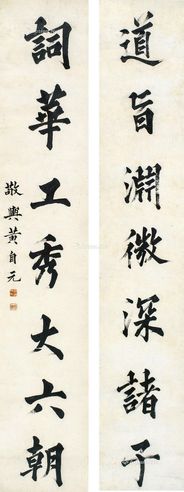 道旨淵微深諸子
詞華工秀大六朝
敬輿黃自元